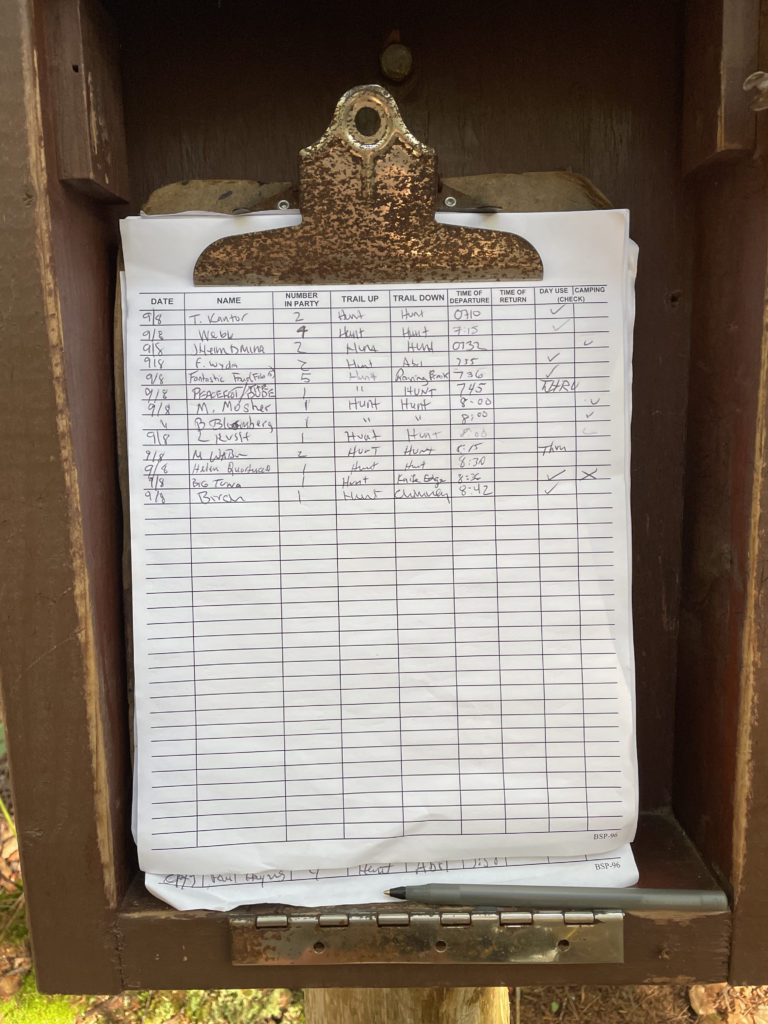 DATE NAME NUMBER IN PARTY TRAIL UP TRAIL DOWN TIME OF DEPARTURE TIME OF RETURN DAY USE CAMPING (CHECK)
9/8 T. Kantor 2 Hunt Hunt 0710 ✓
9/8 Webb 4 Hunt Hunt 7:15 ✓
9/8 2 Hunt Hunt 0732 ✓
9/8 F. Wyda 2 Hunt Abol 735 ✓
9/8 Fantastic Four 5 Hunt Roaring Brook 736 ✓
9/8 PEACEFUL / DUDE 1 " HUNT 745 THRU
9/8 M. Mosher 1 Hunt Hunt 8:00 ✓
" B Bloomberg 1 " " 8:00 ✓
9/8 L RUSH 1 Hunt Hunt 8:00
9/8 M 2 HUNT HUNT 8:15 Thru
9/8 Helen 1 Hunt Hunt 8:30
9/8 BIG TUNA 1 Hunt Knife Edge 8:36 ✓ X
9/8 Birch 1 Hunt Chimney 8:42 ✓
BSP-96
4 Hunt ABOL
BSP-96